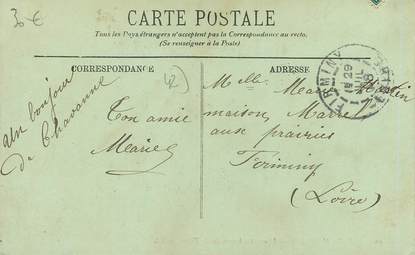 30 €
CARTE POSTALE
Tous les Pays étrangers n'acceptent pas la Correspondance au recto.
(Se renseigner à la Poste)
CORRESPONDANCE
42
ADRESSE
un bonjour
de Chavanne
Ton amie
Marie
Melle
maison Marrel
aux prairies
Firminy
(Loire)
FIRMINY
29